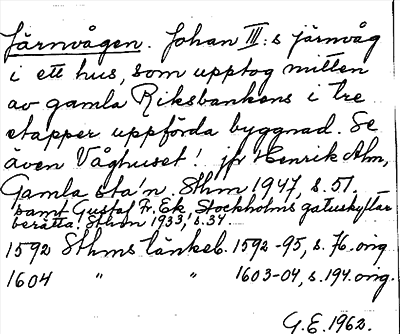 Järnvågen. Johan III:s järnvåg
i ett hus, som upptog mitten
av gamla Riksbankens i tre
etapper uppförda byggnad. Se
även Våghuset! jfr Henrik Alm,
Gamla sta'n. Sthlm 1947, s. 51.
samt Gustaf Fr. Ek, Stockholms gatuskyltar
berätta. Sthlm 1933, s. 37.
1592 Sthms tänkeb. 1592-95, s. 76. orig
1604 " " 1603-04, s. 194. orig.
G.E. 1962.